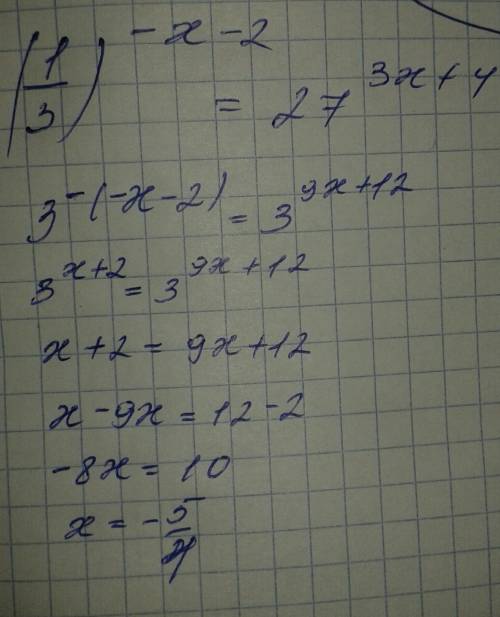 (1/3)^(-x-2) = 27^(3x+4)
3^(-(-x-2)) = 3^(9x+12)
3^(x+2) = 3^(9x+12)
x+2 = 9x+12
x-9x = 12-2
-8x = 10
x = -5/4